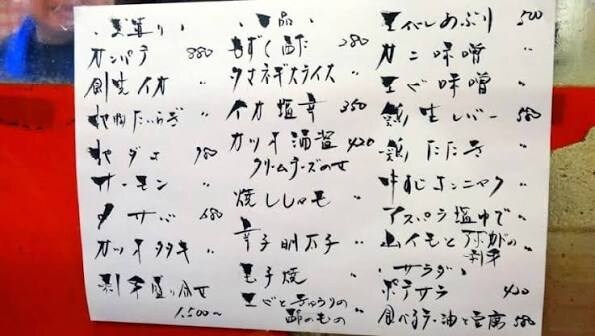 ・お造り・
カンパチ 880
創生イカ 〃
地物たいらぎ 〃
地ダコ 980
サーモン 〃
〆サバ 680
カツオタタキ 〃
刺身盛り合せ
1,500〜
・一品・
もずく酢 280
タマネギスライス 〃
イカ塩辛 350
カツオ酒盗 420
クリームチーズのせ
焼ししゃも 〃
辛子明太子 〃
玉子焼 〃
エビときゅうりの
酢のもの 〃
エイヒレあぶり 500
カニ味噌 〃
エビ味噌 〃
生レバー 580
たたき 〃
牛すじコンニャク 〃
アスパラ塩ゆで 〃
山イモとアボカドの
刺身 〃
・サラダ・
ポテサラ 420
食べるラー油と豆腐 580